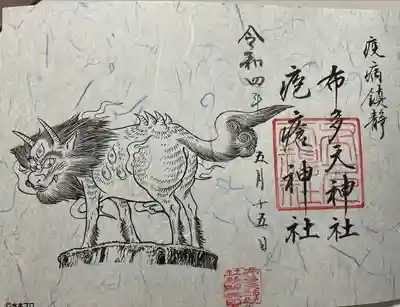 疫病鎮静
布多天神社
疱瘡神社
令和四年
五月十五日
©水木プロ